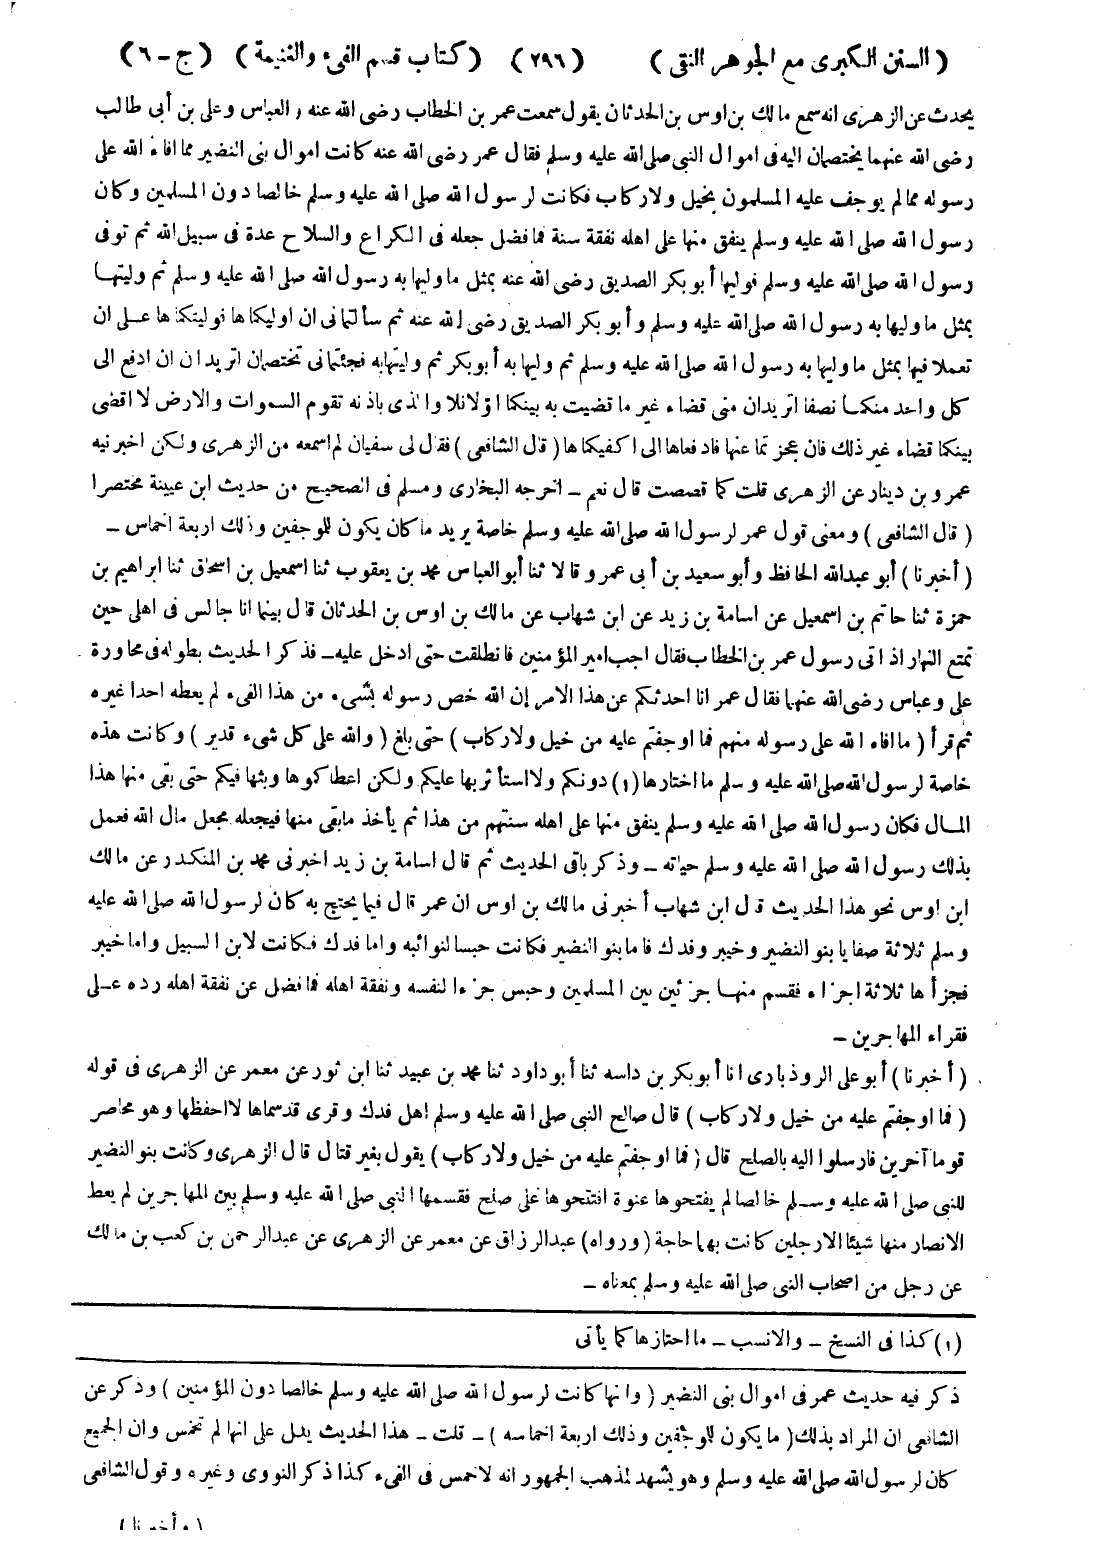 ( السنن الكبرى مع الجوهر النقى ) ( ٢٩٦ ) ( كتاب قسم الفىء والغنيمة ) ( ج - ٦ )
يحدث عن الزهرى انه سمع مالك بن اوس بن الحدثان يقول سمعت عمر بن الخطاب رضى الله عنه والعباس وعلى بن أبى طالب
رضى الله عنهما يختصمان اليه فى اموال النبى صلى الله عليه وسلم فقال عمر رضى الله عنه كانت اموال بنى النضير مما افاء الله على
رسوله مما لم يوجف عليه المسلمون بخيل ولا ركاب فكانت لرسول الله صلى الله عليه وسلم خالصا دون المسلمين وكان
رسول الله صلى الله عليه وسلم ينفق منها على اهله نفقة سنة فما فضل جعله فى الكراع والسلاح عدة فى سبيل الله ثم توفى
رسول الله صلى الله عليه وسلم فوليها أبو بكر الصديق رضى الله عنه بمثل ما وليها به رسول الله صلى الله عليه وسلم ثم وليتها
بمثل ما وليها به رسول الله صلى الله عليه وسلم وأبو بكر الصديق رضى الله عنه ثم سألتمانى ان اوليكماها فوليتكماها على ان
تعملا فيها بمثل ما وليها به رسول الله صلى الله عليه وسلم ثم وليها به أبو بكر ثم وليتها به فجئتمانى تختصمان اتريدان ان ادفع الى
كل واحد منكما نصفا اتريدان منى قضاء غير ما قضيت به بينكما اولا فلا والذى باذنه تقوم السموات والارض لا اقضى
بينكما قضاء غير ذلك فان عجزتما عنها فادفعاها الى اكفيكماها ( قال الشافعى ) فقال لى سفيان لم اسمعه من الزهرى ولكن اخبرنيه
عمرو بن دينار عن الزهرى قلت كما قصصت قال نعم - اخرجه البخارى ومسلم فى الصحيح من حديث ابن عيينة مختصرا
( قال الشافعى ) ومعنى قول عمر لرسول الله صلى الله عليه وسلم خاصة يريد ما كان يكون للموجفين وذلك اربعة اخماس -
( أخبرنا ) أبو عبدالله الحافظ وأبو سعيد بن أبى عمرو قالا ثنا أبو العباس محمد بن يعقوب ثنا اسمعيل بن اسحاق ثنا ابراهيم بن
حمزة ثنا حاتم بن اسمعيل عن اسامة بن زيد عن ابن شهاب عن مالك بن اوس بن الحدثان قال بينما انا جالس فى اهلى حين
تمتع النهار اذ اتى رسول عمر بن الخطاب فقال اجب امير المؤمنين فانطلقت حتى ادخل عليه - فذكر الحديث بطوله فى محاورة
على وعباس رضى الله عنهما فقال عمر انا احدثكم عن هذا الامر إن الله خص رسوله بشىء من هذا الفىء لم يعطه احدا غيره
ثم قرأ ( ما افاء الله على رسوله منهم فما اوجفتم عليه من خيل ولا ركاب ) حتى بلغ ( والله على كل شىء قدير ) وكانت هذه
خاصة لرسول الله صلى الله عليه وسلم ما اختارها (١) دونكم ولا استأثر بها عليكم ولكن اعطاكموها وبثها فيكم حتى بقى منها هذا
المال فكان رسول الله صلى الله عليه وسلم ينفق منها على اهله سنتهم من هذا ثم يأخذ مابقى منها فيجعله مجعل مال الله فعمل
بذلك رسول الله صلى الله عليه وسلم حياته - وذكر باقى الحديث ثم قال اسامة بن زيد اخبرنى محمد بن المنكدر عن مالك
ابن اوس نحو هذا الحديث قال ابن شهاب أخبرنى مالك بن اوس ان عمر قال فيما يحتج به كان لرسول الله صلى الله عليه
وسلم ثلاثة صفايا بنو النضير وخيبر وفدك فاما بنو النضير فكانت حبسا لنوائبه واما فدك فكانت لابن السبيل واما خيبر
فجزأها ثلاثة اجزاء فقسم منها جزئين بين المسلمين وحبس جزءا لنفسه ونفقة اهله فما فضل عن نفقة اهله رده على
فقراء المهاجرين -
( أخبرنا ) أبو على الروذبارى انا أبو بكر بن داسه ثنا أبو داود ثنا محمد بن عبيد ثنا ابن ثور عن معمر عن الزهرى فى قوله
( فما اوجفتم عليه من خيل ولا ركاب ) قال صالح النبى صلى الله عليه وسلم اهل فدك وقرى قد سماها لا احفظها وهو محاصر
قوما آخرين فارسلوا اليه بالصلح قال ( فما اوجفتم عليه من خيل ولا ركاب ) يقول بغير قتال قال الزهرى وكانت بنو النضير
للنبى صلى الله عليه وسلم خالصا لم يفتحوها عنوة افتتحوها على صلح فقسمها النبى صلى الله عليه وسلم بين المهاجرين لم يعط
الانصار منها شيئا الا رجلين كانت بهما حاجة ( ورواه ) عبدالرزاق عن معمر عن الزهرى عن عبدالرحمن بن كعب بن مالك
عن رجل من اصحاب النبى صلى الله عليه وسلم بمعناه -
(١) كذا فى النسخ - والانسب - ما احتازها كما يأتى
ذكر فيه حديث عمر فى اموال بنى النضير ( وانها كانت لرسول الله صلى الله عليه وسلم خالصا دون المؤمنين ) وذكر عن
الشافعى ان المراد بذلك ( ما يكون للموجفين وذلك اربعة اخماسه ) - قلت - هذا الحديث يدل على انها لم تخمس وان الجميع
كان لرسول الله صلى الله عليه وسلم وهو يشهد لمذهب الجمهور انه لا خمس فى الفىء كذا ذكر النووى وغيره وقول الشافعى
( وأخبرنا )